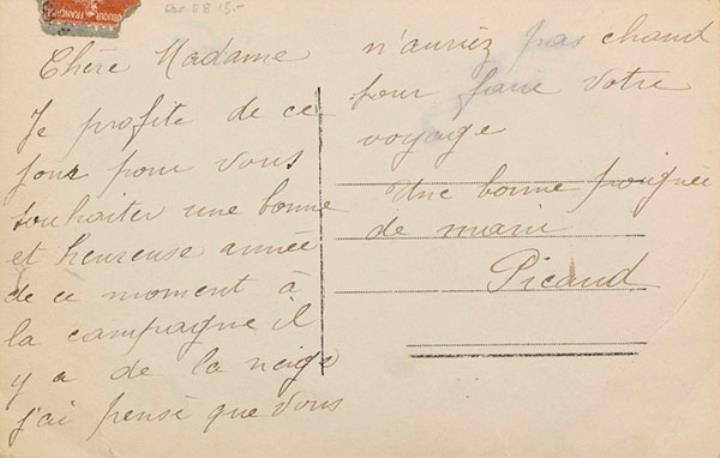 Chère Madame
Je profite de ce
jour pour vous
souhaiter une bonne
et heureuse année
de ce moment à
la campagne il
y a de la neige
j'ai pensé que vous
n'auriez pas chaud
pour faire votre
voyage
Une bonne poignée
de main
Picaud